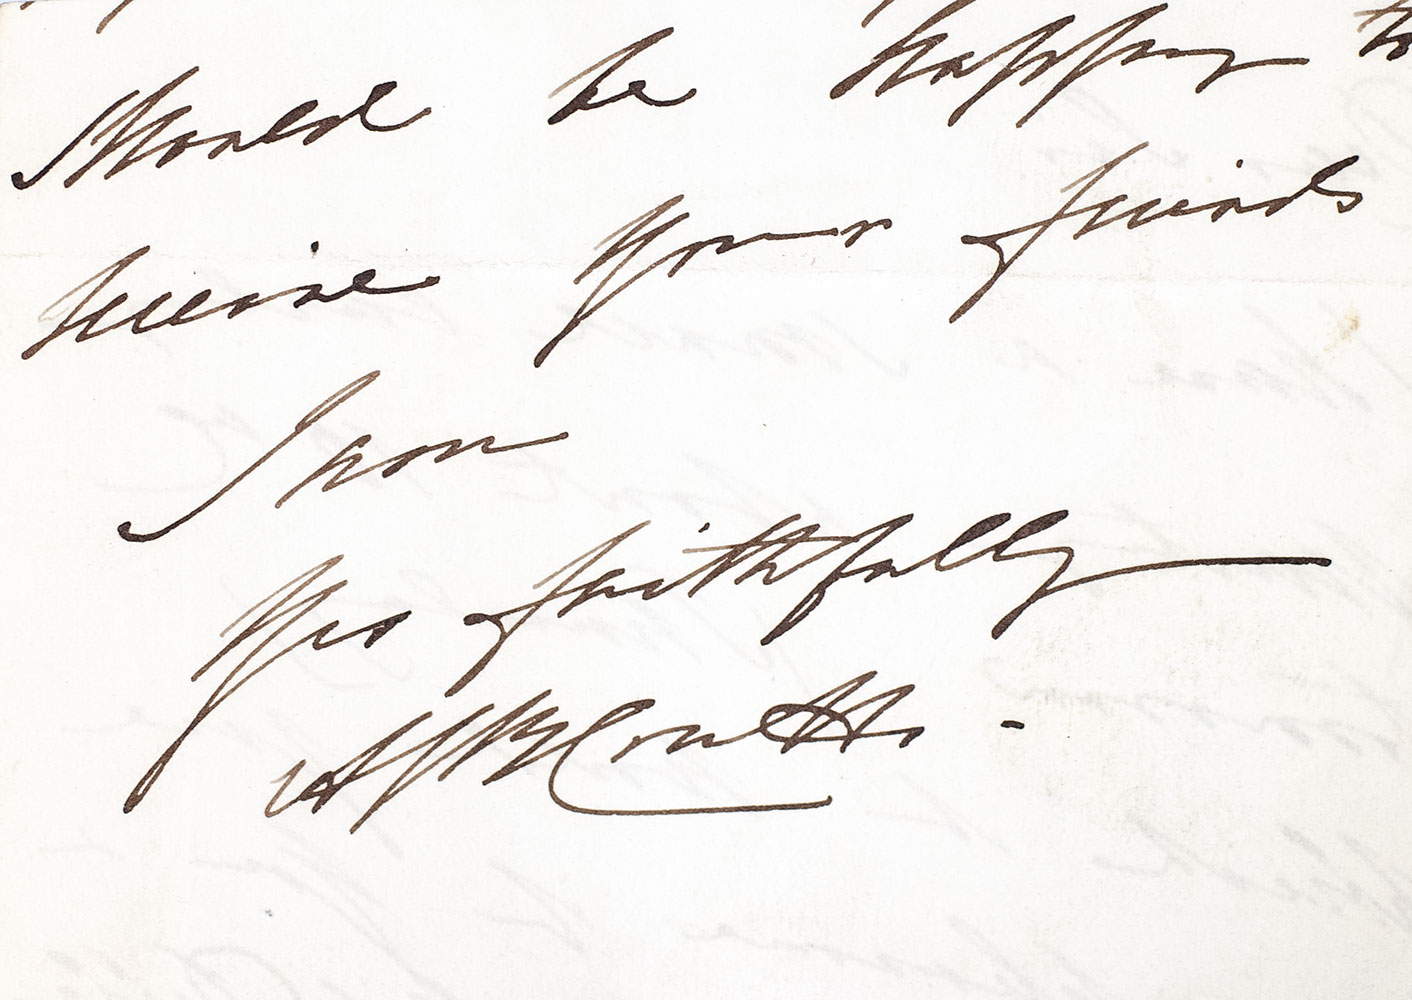 should be happy to
receive your friends
I am
Yrs faithfully
A G B Coutts -